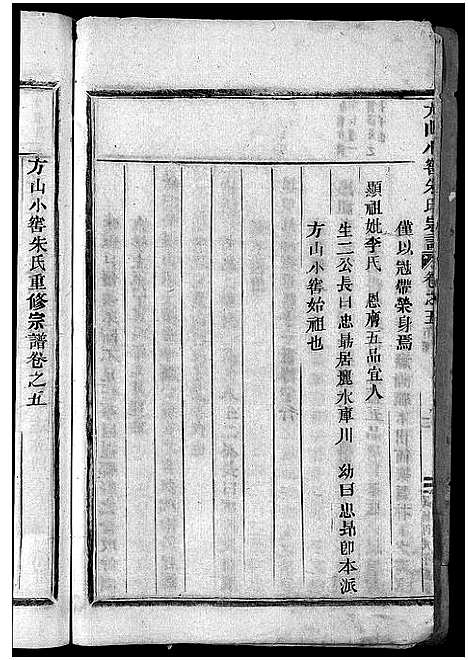 方山小窖朱氏宗譜 卷之五
僅以冠帶榮身焉
顯祖妣李氏 恩膺五品宜人
生二公長曰忠勗居麗水庫川 幼曰忠昂卽本派
方山小窖始祖也
方山小窖朱氏重修宗譜卷之五